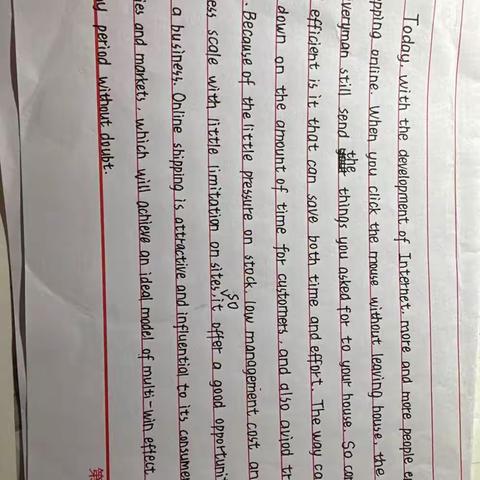 Today, with the development of Internet, more and more people e
pping online. When you click the moue without leaving house, the
everyman still send the things you asked for to your house. So con
efficient is it that can save both time and effort. The way ca
down on the amount of time for customers, and also avoid tr
. Because of the little pressure on stock, low management cost an
ess scale with little limitation on sites, so it offer a good opportunit
a business. Online shipping is attractive and influential to its consume
ies and markets, which will achieve an ideal model of multi-win effect
period without doubt.
第